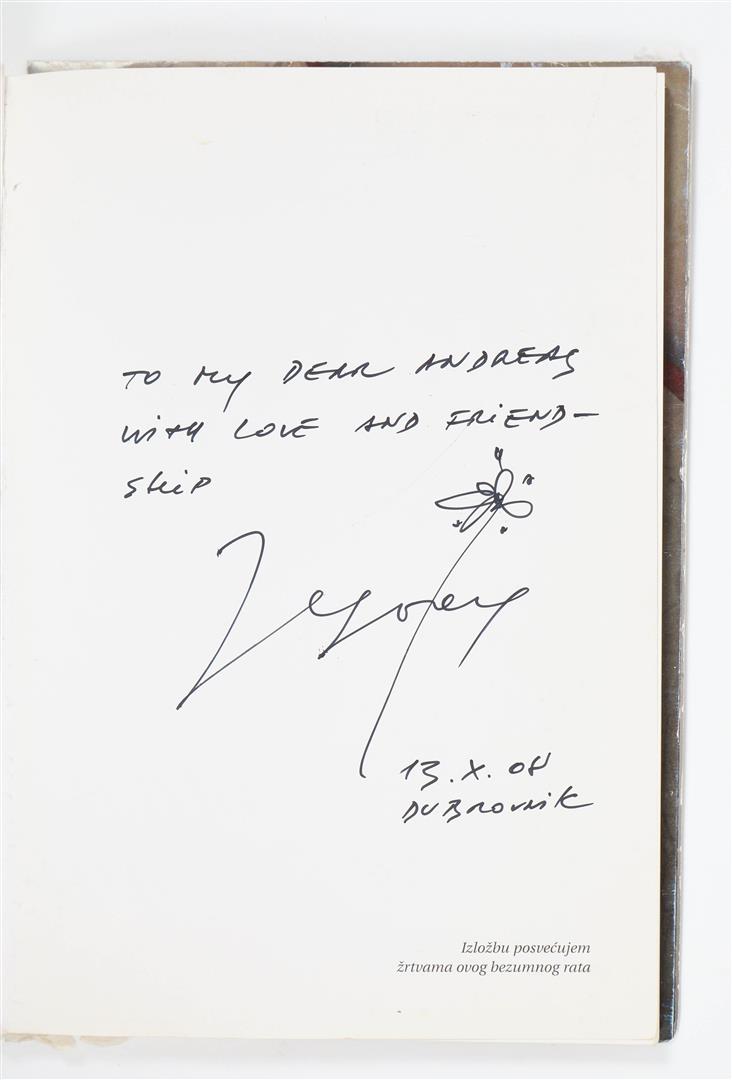 TO MY DEAR ANDREAS
WITH LOVE AND FRIEND-
SHIP
13.X.08
DUBROVNIK
Izložbu posvećujem
žrtvama ovog bezumnog rata